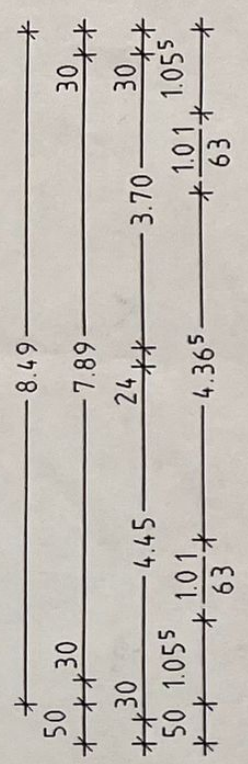 8.49
50 30 7.89 30
30 4.45 24 3.70 30
50 1.05⁵ 1.01 4.36⁵ 1.01 1.05⁵
63 63